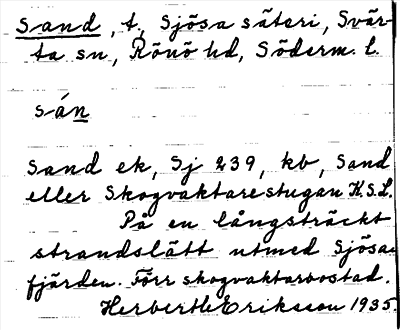 Sand, t, Sjösa säteri, Svär-
ta sn, Rönö hd, Söderm. l.
sán
Sand ek, Sj 239, kb, Sand
eller Skogvaktarestugan K.S.L.
På en långsträckt
strandslätt utmed Sjösa-
fjärden. Förr skogvaktarbostad.
Herbert Eriksson 1935.